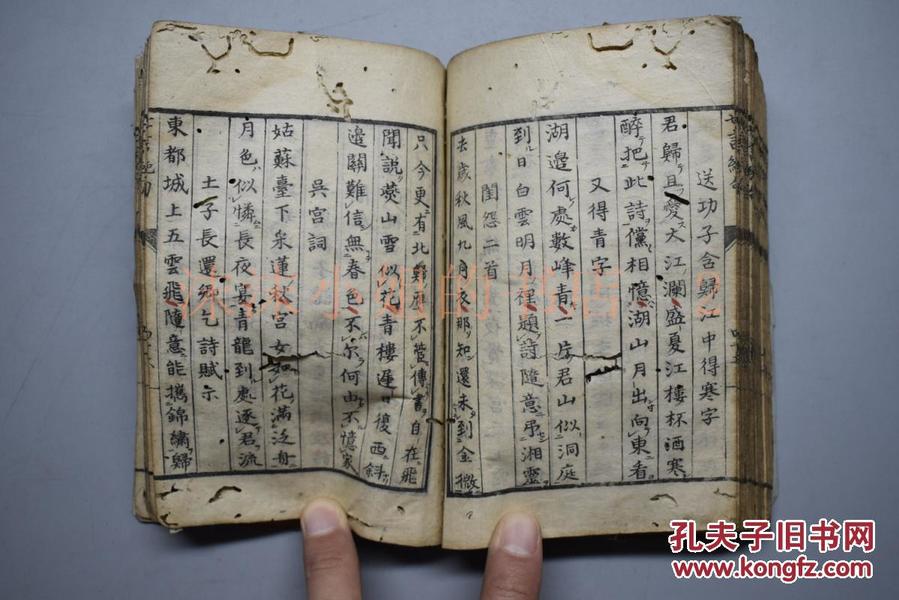 送功子含歸江中得寒字
君歸且愛大江瀾盛夏江樓杯酒寒
醉把此詩儻相憶湖山月出向東看
又得青字
湖邊何處數峰青一片君山似洞庭
到日白雲明月裡題詩隨意弔湘靈
閨怨二首
去歲秋風九月衣那知還未到金微
只今更有北歸雁不管傳書自在飛
聞說燕山雪似花青樓遲日復西斜
邊關難信無春色不尔何由不憶家
吳宮詞
姑蘇臺下采蓮秋宮女如花滿泛舟
月色似憐長夜宴青龍到處逐君流
土子長還鄉乞詩賦示
東都城上五雲飛隨意能攜錦繡歸
孔夫子旧书网
www.kongfz.com